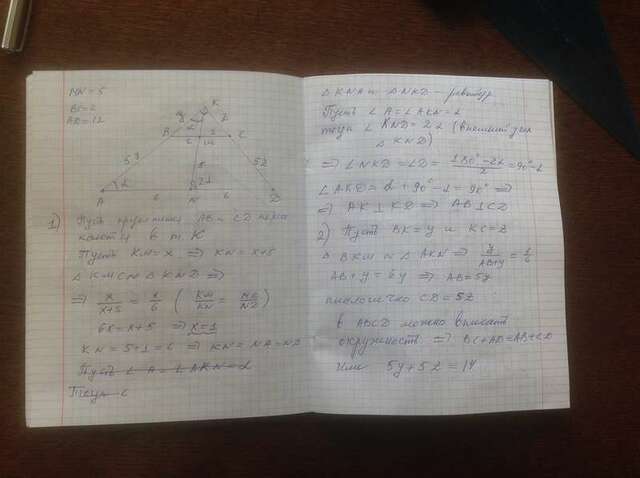 MN = 5
BC = 2
AD = 12
K
y
z
B
C
1
M
5y
5
5z
A
α
6
N
2α
6
D
1) Пусть прямые AB и CD пересе
каются в т. K
Пусть KM = x ⇒ KN = x+5
△ KMC ∾ △ KND ⇒
⇒ x/(x+5) = x/6 ( KM/KN = MC/ND )
6x = x+5 ⇒ x=1
KN = 5+1 = 6 ⇒ KN = NA = ND
Пусть ∠ A = ∠ AKN = α
Тогда
△ KNA и △ NKD - равнобедр
Пусть ∠ A = ∠ AKN = α
тогда ∠ KND = 2α (внешний угол
△ KND)
⇒ ∠ NKD = ∠D = (180° - 2α)/2 = 90° - α
∠ AKD = α + 90° - α = 90° ⇒
⇒ AK ⊥ KD ⇒ AB ⊥ CD
2) Пусть BK = y и KC = z
△ BKM ∾ △ AKN ⇒ y/(AB+y) = 1/6
AB + y = 6y ⇒ AB = 5y
аналогично CD = 5z
В ABCD можно вписать
окружность ⇒ BC + AD = AB + CD
или 5y + 5z = 14